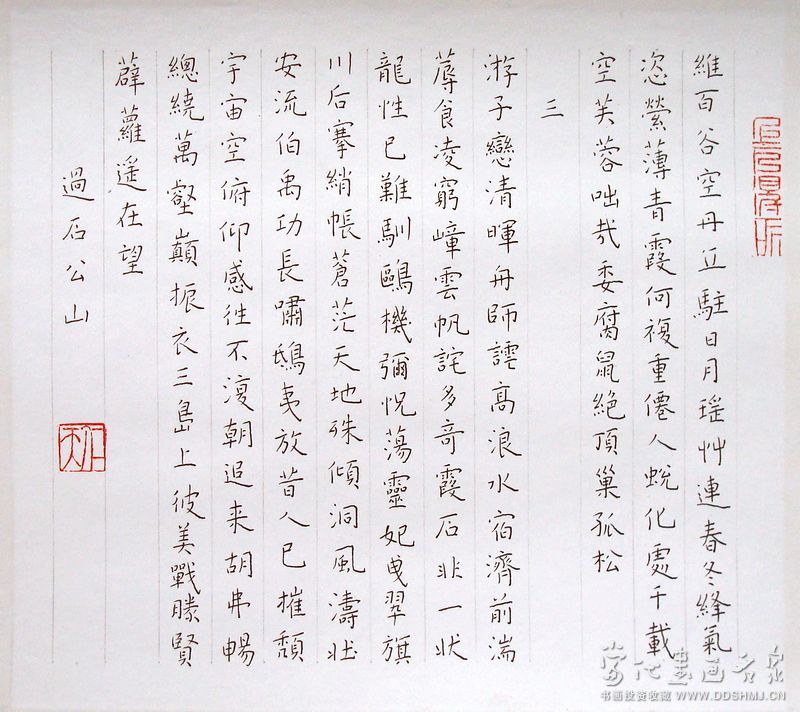 維百谷空丹丘駐日月瑶艸連春冬絳氣
恣縈薄青霞何複重僊人蛻化處千載
空芙蓉咄哉委腐鼠絶頂巢孤松
三
游子戀清暉舟師謔高浪水宿濟前湍
蓐食凌窮嶂雲帆詫多奇霞石非一狀
龍性已難馴鷗機彌怳蕩靈妃曳翠旗
川后搴綃帳蒼茫天地殊傾洞風濤壯
安流伯禹功長嘯鴟夷放昔人已摧頹
宇宙空俯仰感往不復朝追来胡弗暢
總繞萬壑巔振衣三島上彼美戰勝賢
薜蘿遥在望
過石公山
当代书画名家
书画投资收藏 WWW.DDSHMJ.CN